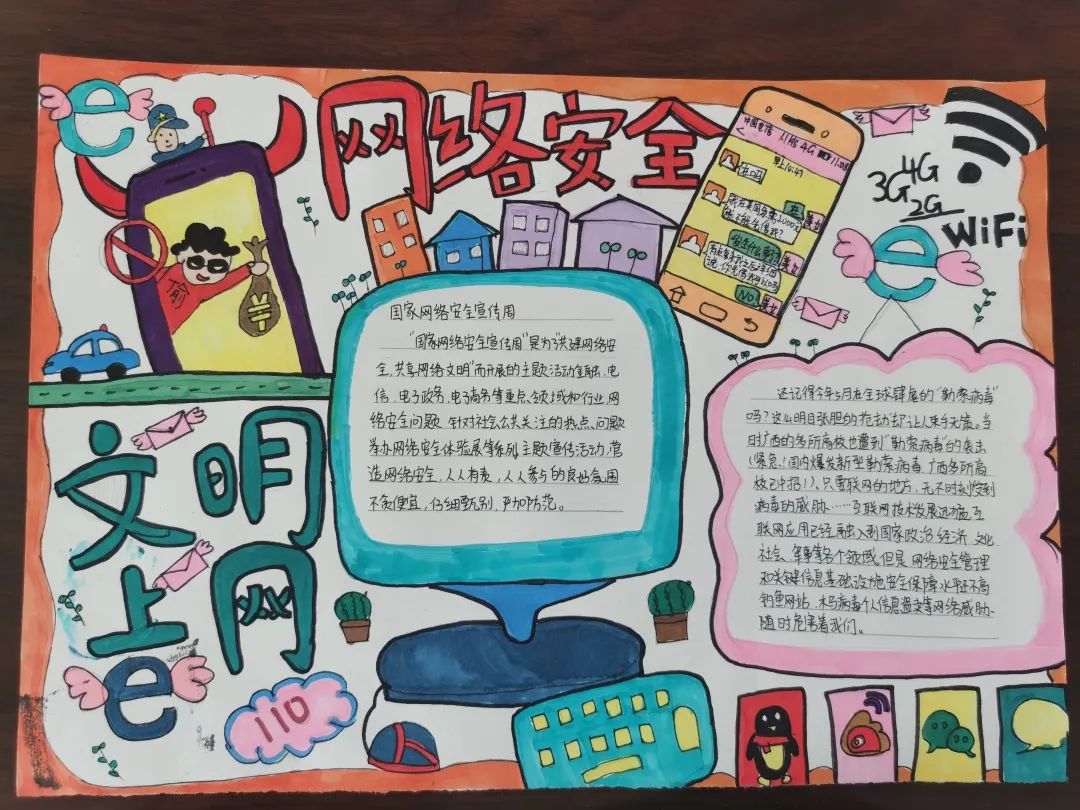 网络安全
中国电信 4G
早上10:47
在吗
在
发生什么事了
NO!
4G
3G
2G
WiFi
偷
¥
e
e
国家网络安全宣传周
“国家网络安全宣传周”是为“共建网络安
全,共享网络文明”而开展的主题活动,金融、电
信、电子政务、电子商务等重点领域和行业网
络安全问题,针对社会公共关注的热点问题
举办网络安全体验展等系列主题宣传活动,营
造网络安全,人人有责,人人参与的良好氛围
不贪便宜,仔细甄别,严加防范。
还记得今年5月在全球肆虐的“勒索病毒”
吗?这么明目张胆的抢劫却让人束手无策。当
时广西的多所高校也遭到“勒索病毒”的袭击
(紧急!国内爆发新型勒索病毒,广西多所高
校已中招!),只要联网的地方,无不时刻受到
病毒的威胁……互联网技术发展迅猛,互
联网应用已经融入到国家政治、经济、文化
社会、军事等各个领域,但是网络安全管理
和关键信息基础设施安全保障水平还不高
钓鱼网站、木马病毒个人信息泄露等网络威胁
随时危害着我们。
文明
上网
e
110